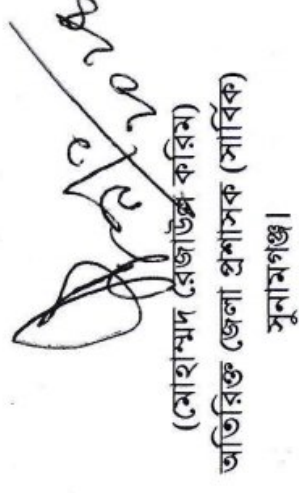 (মোহাম্মদ রেজাউল করিম)
অতিরিক্ত জেলা প্রশাসক (সার্বিক)
সুনামগঞ্জ।